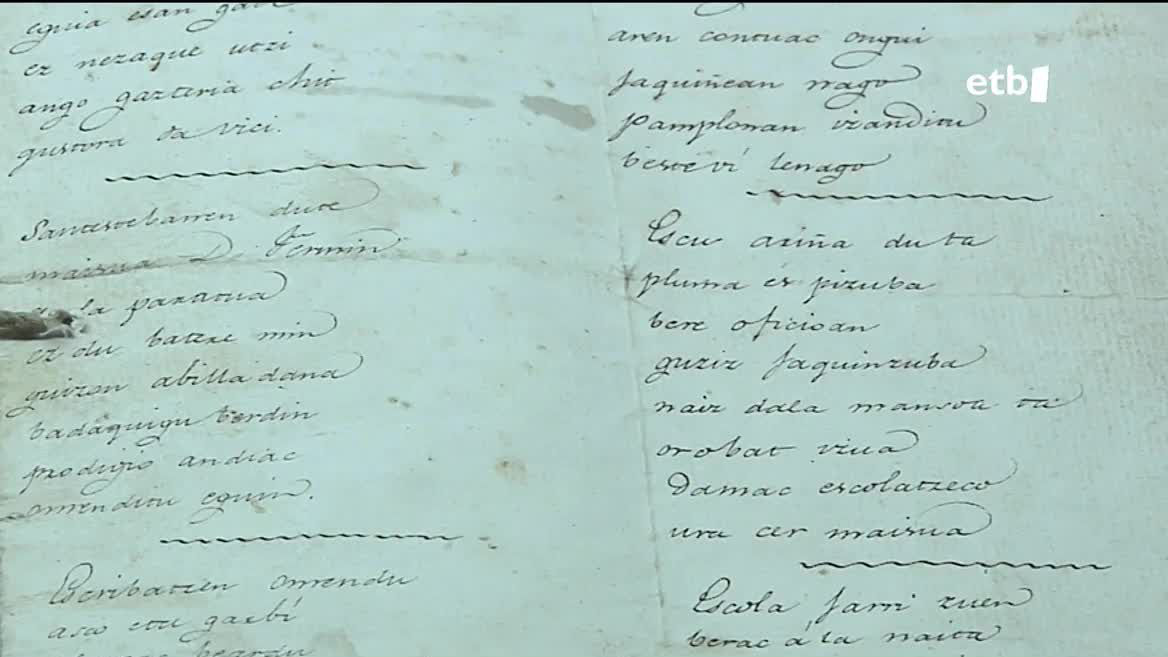 eguia esan gau
ez nezaque utzi
ango gazteria chit
gustora da vici.
Santestebanen dute
maisua D. Fermin
la paratua
ez du batere min
guizon abilladana
badaquigu berdin
prodigio andiac
omenditu eguin.
Escribatzen omendu
asco etu garbi
beardu
aren contuac ongui
Jaquiñean nago
Pamplonan izanditu
beste vi lenago
Escu ariña du ta
pluma ez pizuba
bere oficioan
guziz Jaquinzuba
naiz dala mansoa ta
orobat viua
Damac escolatzeco
ura cer maisua
Escola Jarri zuen
berac á la naita
etb1